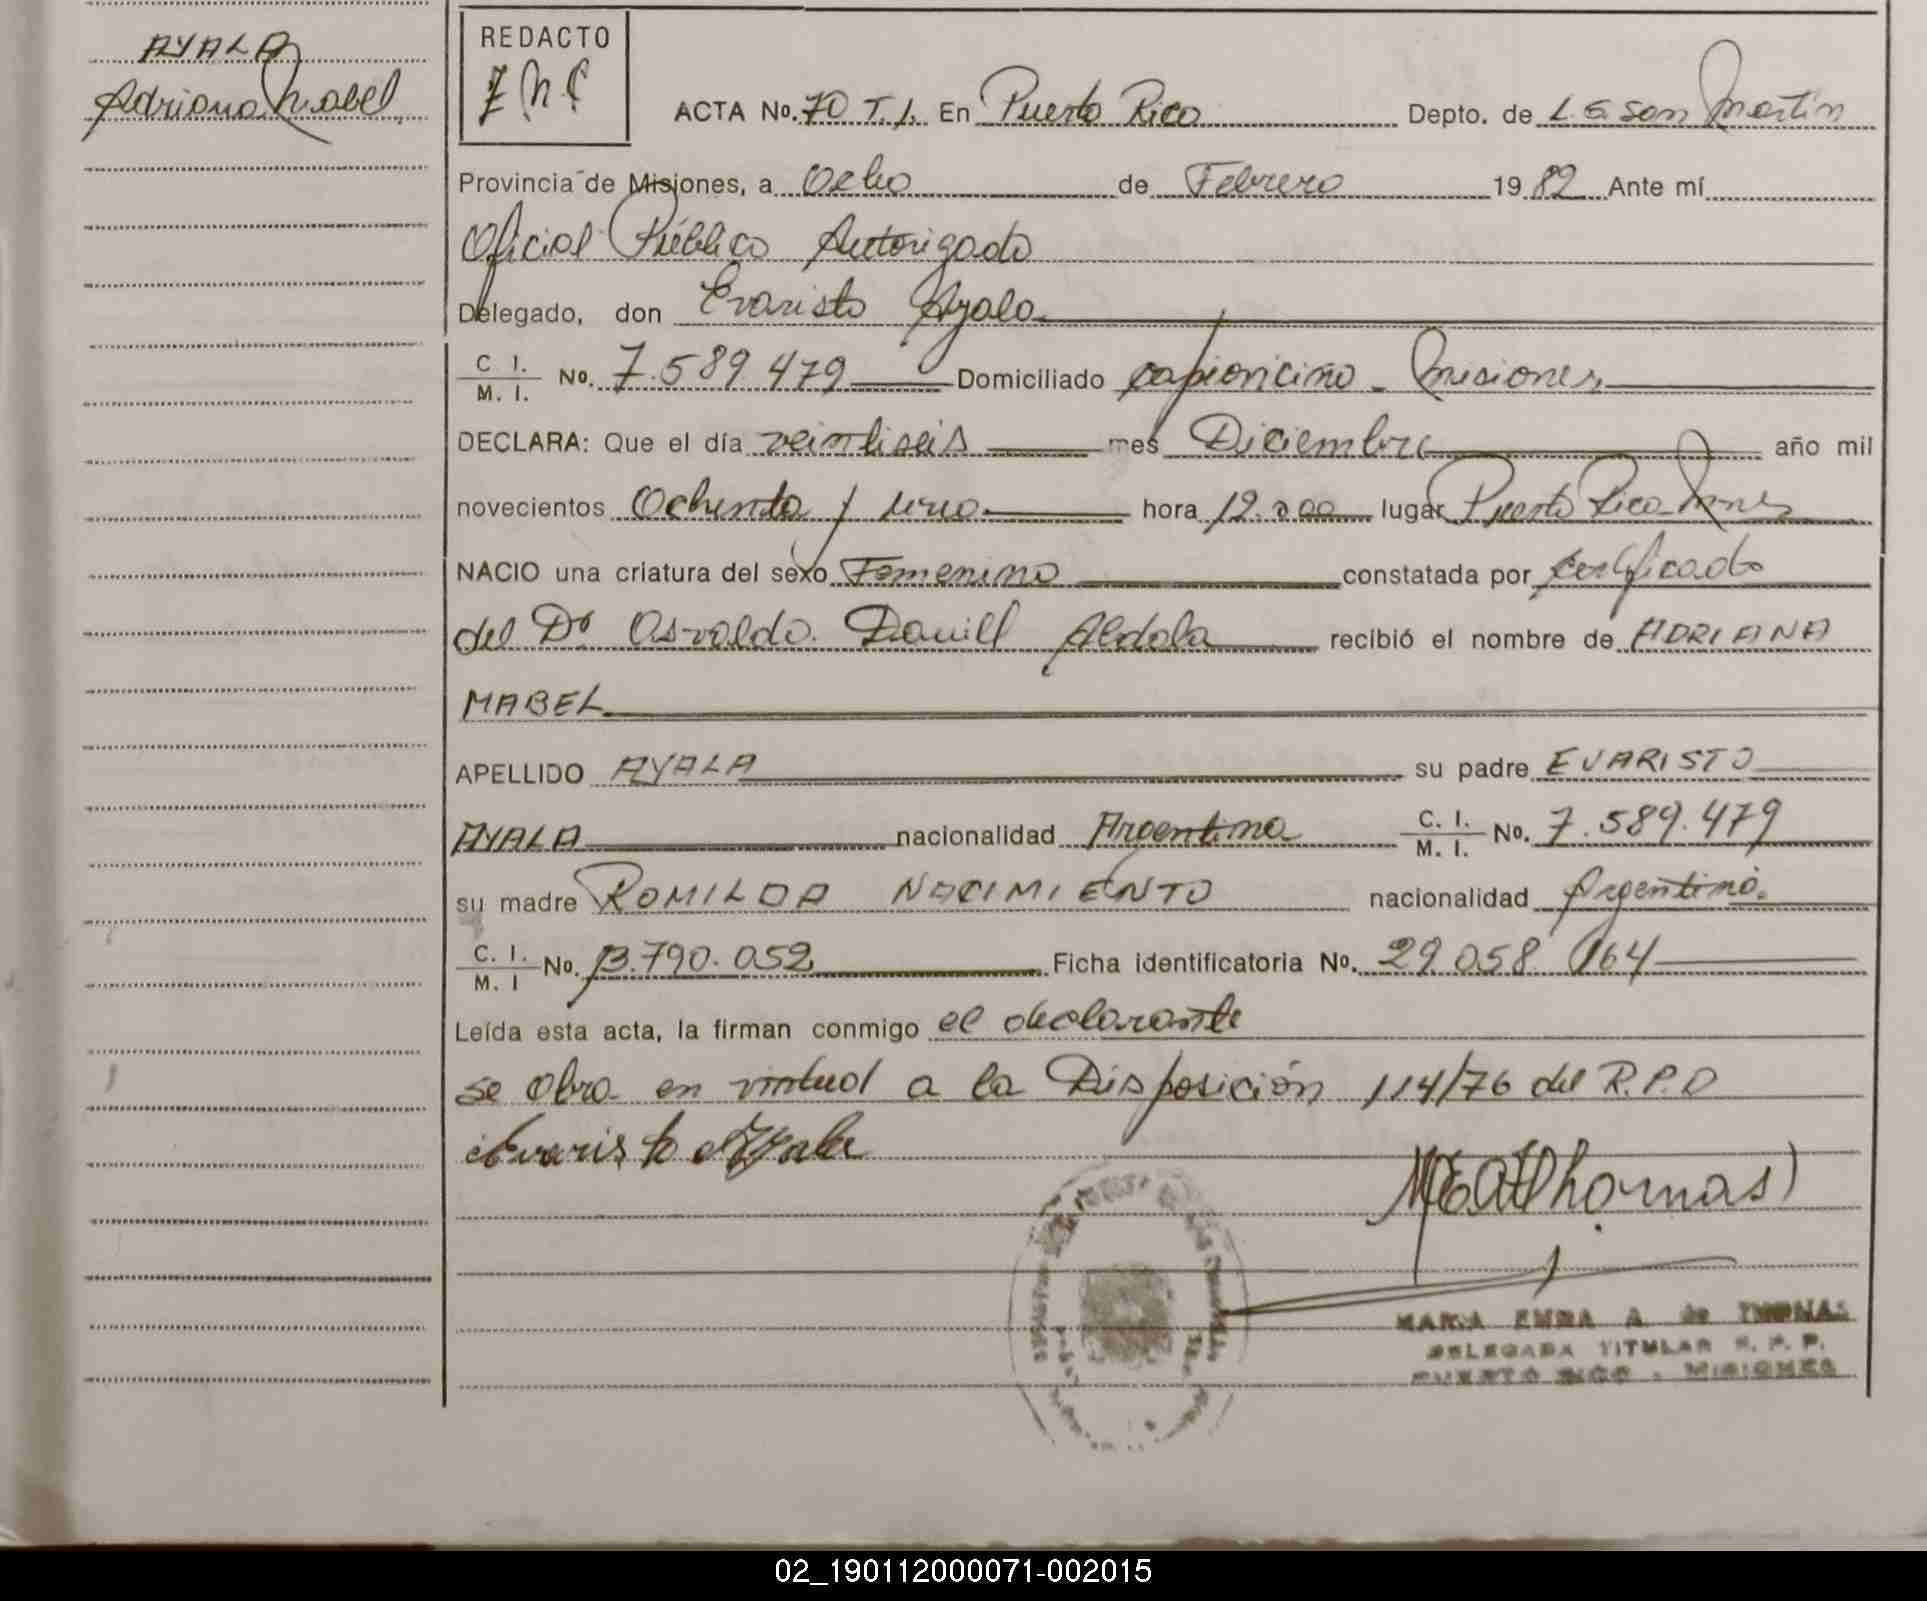 AYALA
Adriana Mabel
REDACTO
ACTA No. 70 T.I. En Puerto Rico Depto. de L.G. San Martín
Provincia de Misiones, a Ocho de Febrero 1982 Ante mí
Oficial Público Autorizado
Delegado, don Evaristo Ayala
C. I. / M. I. No. 7.589.479 Domiciliado Capiovicino - Misiones
DECLARA: Que el día veintiseis mes Diciembre año mil
novecientos Ochenta y uno hora 12.00 lugar Puerto Rico Mnes
NACIO una criatura del sexo Femenino constatada por certificado
del Dr Osvaldo Daniel Aldola recibió el nombre de ADRIANA
MABEL
APELLIDO AYALA su padre EVARISTO
AYALA nacionalidad Argentina C. I. / M. I. No. 7.589.479
su madre ROMILDA NACIMIENTO nacionalidad Argentina
C. I. / M. I No. 13.790.052 Ficha identificatoria No. 29.058.164
Leída esta acta, la firman conmigo el declarante
se obra en virtud a la Disposición 114/76 del R.P.D
Evaristo Ayala
MEAThomas
MARIA EMMA A. de THOMAS
DELEGADA TITULAR R. P. P.
PUERTO RICO - MISIONES
02_190112000071-002015